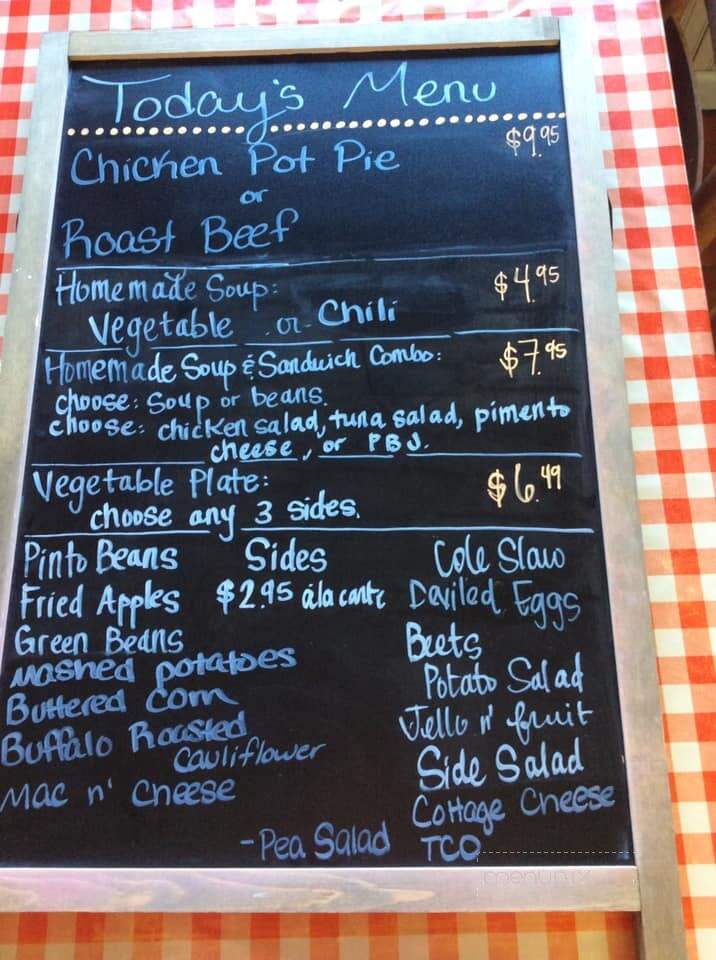 Today's Menu
$9.95
Chicken Pot Pie
or
Roast Beef
Homemade Soup: $4.95
Vegetable or Chili
Homemade Soup & Sandwich Combo: $7.95
choose: Soup or beans.
choose: chicken salad, tuna salad, pimento
cheese, or PBJ.
Vegetable Plate: $6.49
choose any 3 sides.
Sides
$2.95 álacarte
Pinto Beans
Fried Apples
Green Beans
mashed potatoes
Buttered Corn
Buffalo Roasted
Cauliflower
Mac n' Cheese
Cole Slaw
Deviled Eggs
Beets
Potato Salad
Jello n' fruit
Side Salad
Cottage Cheese
-Pea Salad TCO
menupix